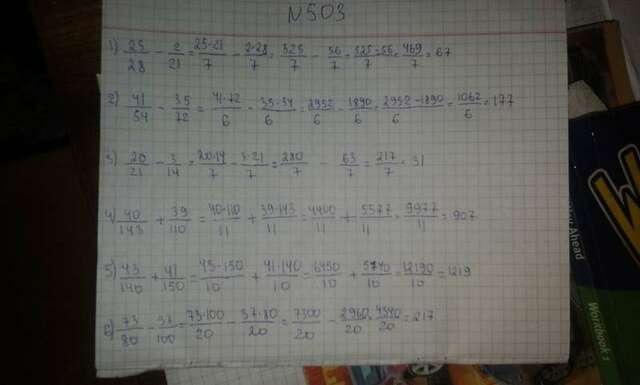 N503
1) 25/28 - 2/21 = 25·21/7 - 2·28/7 = 525/7 - 56/7 = 525-56/7 = 469/7 = 67
2) 41/54 - 35/72 = 41·72/6 - 35·54/6 = 2952/6 - 1890/6 = 2952-1890/6 = 1062/6 = 177
3) 20/21 - 3/14 = 20·14/7 - 3·21/7 = 280/7 - 63/7 = 217/7 = 31
4) 40/143 + 39/110 = 40·110/11 + 39·143/11 = 4400/11 + 5577/11 = 9977/11 = 907
5) 43/140 + 41/150 = 43·150/10 + 41·140/10 = 6450/10 + 5740/10 = 12190/10 = 1219
6) 73/80 - 37/100 = 73·100/20 - 37·80/20 = 7300/20 - 2960/20 = 4340/20 = 217
Ahead
Workbook 1